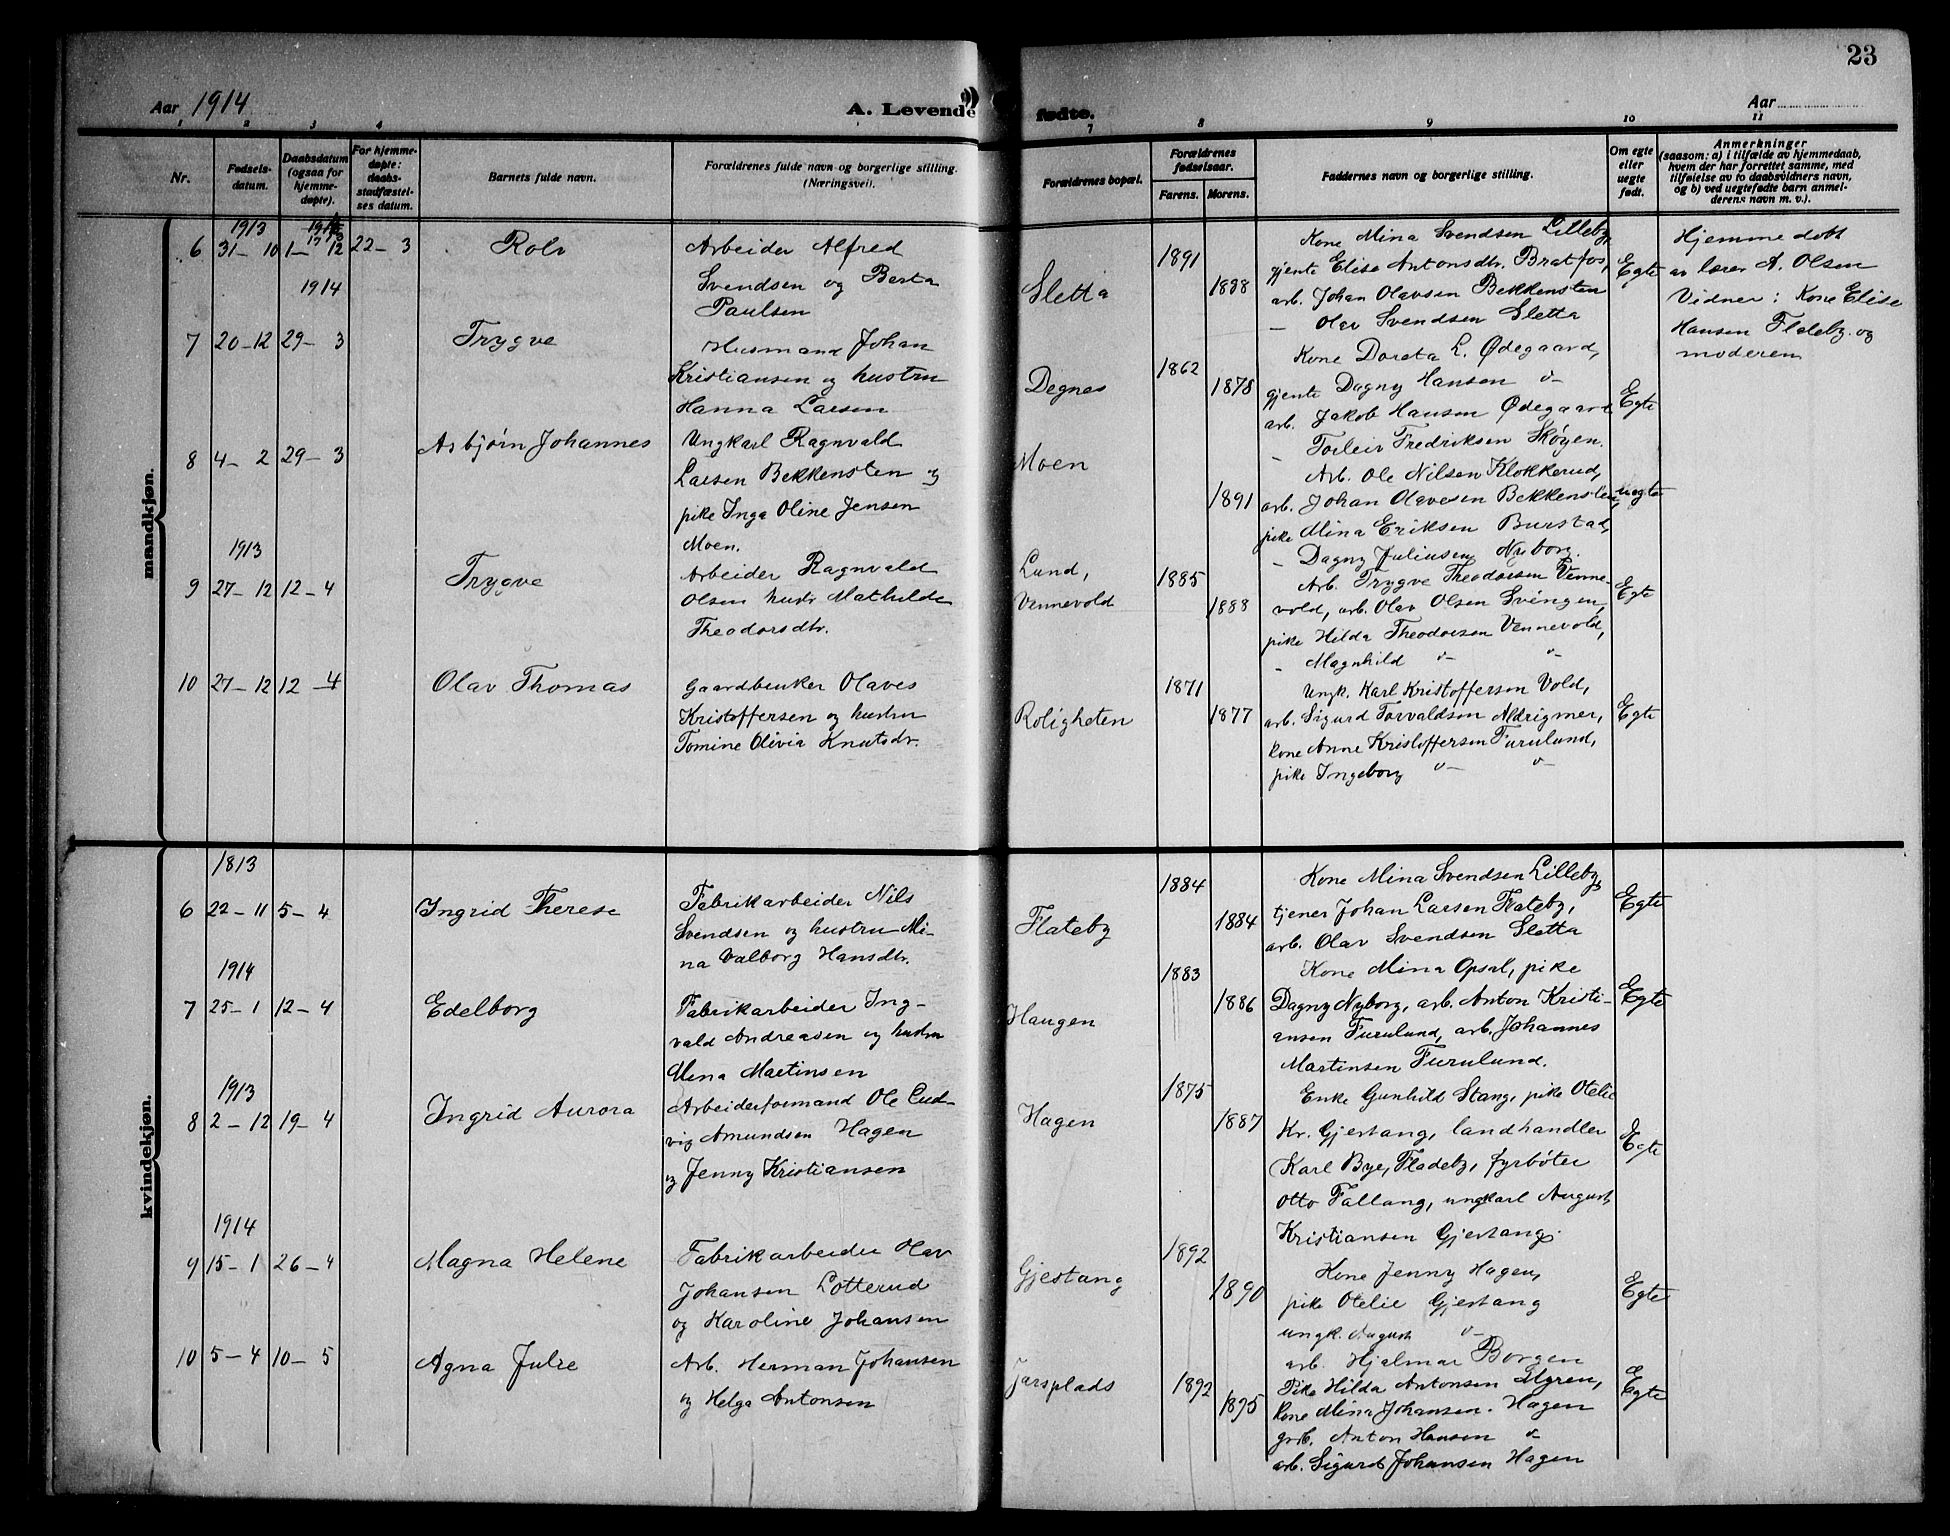 23
Aar 1914
A. Levende fødte.
Aar
1 2 3 4 7 8 9 10 11
Nr.
Fødsels-
datum.
Daabsdatum
(ogsaa for
hjemme-
døpte).
For hjemme-
døpte:
daabs-
stadfæstel-
ses datum.
Barnets fulde navn.
Forældrenes fulde navn og borgerlige stilling.
(Næringsvei).
Forældrenes bopæl.
Forældrenes
fødselsaar.
Farens. Morens.
Faddernes navn og borgerlige stilling.
Om egte
eller
uegte
født.
Anmerkninger
(saasom: a) i tilfælde av hjemmedaab,
hvem der har forrettet samme, med
tilføielse av to daabsvidners navn,
og b) ved uegtefødte barn anmel-
derens navn m. v.).
mandkjøn.
1913
6 31-10 1-12 22-3 Rolv
1914
Arbeider Alfred
Svendsen og Berta
Paulsen
Sletta
1891
1888
Kone Mina Svendsen Lilleby,
gjente Elise Antonsdtr. Bratfos,
arb. Johan Olavsen Bekkensten
- Olav Svendsen Sletta
Egte
Hjemmedøbt
av lærer A. Olsen
Vidner: Kone Elise
Hansen Flateby og
moderen
7 20-12 29-3 Trygve
Husmand Johan
Kristiansen og hustru
Hanna Larsen
Degnes
1862
1878
Kone Doreta L. Ødegaard,
gjente Dagny Hansen o-
arb. Jakob Hansen Ødegaard
- Torleiv Fredriksen Skøyen.
Egte
8 4-2 29-3 Asbjørn Johannes
Ungkarl Ragnvald
Larsen Bekkensten og
pike Inga Oline Jensen
Moen.
Moen
1891
Arb. Ole Nilsen Klokkerud,
arb. Johan Olavesen Bekkensten,
pike Mina Eriksen Burstad,
- Dagny Juliusen Nyborg.
uegte
1913
9 27-12 12-4 Trygve
Arbeider Ragnvald
Olsen hustr Mathilde
Theodorsdtr.
Lund,
Vennevold
1885
1888
Arb. Trygve Theodorsen Venne-
vold, arb. Olav Olsen Svingen,
pike Hilda Theodorsen Vennevold,
- Magnhild o- o-
Egte
10 27-12 12-4 Olav Thomas
Gaardbruker Olaves
Kristoffersen og hustru
Tomine Olivia Knutsdr.
Roligheten
1871
1877
Ungk. Karl Kristoffersen Vold,
arb. Sigurd Torvaldsen Aldrigmer,
kone Anne Kristoffersen Furulund,
pike Ingeborg o- o-
Egte
kvindekjøn.
1813
6 22-11 5-4 Ingrid Therese
Fabrikarbeider Nils
Svendsen og hustru Mi-
na Valborg Hansdtr.
Flateby
1884
1884
Kone Mina Svendsen Lilleby,
tjener Johan Larsen Flateby,
arb. Olav Svendsen Sletta
Egte
1914
7 25-1 12-4 Edelborg
Fabrikarbeider Ing-
vald Andreasen og hustru
Mina Martinsen
Haugen
1883
1886
Kone Mina Opsal, pike
Dagny Nyborg, arb. Anton Kristi-
ansen Furulund, arb. Johannes
Martinsen Furulund.
Egte
1913
8 2-12 19-4 Ingrid Aurora
Arbeiderformand Ole Lud-
vig Amundsen Hagen
og Jenny Kristiansen
Hagen
1875
1887
Enke Gunhild Stang, pike Otelie
Kr. Gjestang, landhandler
Karl Bye, Fladeby, fyrbøter
Otto Fallang, ungkarl August
Kristiansen Gjestang.
Egte
1914
9 15-1 26-4 Magna Helene
Fabrikarbeider Olav
Johansen Lotterud
og Karoline Johansen
Gjestang
1892
1890
Kone Jenny Hagen,
pike Otelie Gjestang
ungk. August o-
arb. Hjalmar Borgen
Egte
10 5-4 10-5 Agna Julie
Arb. Herman Johansen
og Helga Antonsen
Jarsplads
1892
1895
Pike Hilda Antonsen Myren,
kone Mina Johansen. Hagen
grb. Anton Hansen o-
arb. Sigurd Johansen Hagen
Egte